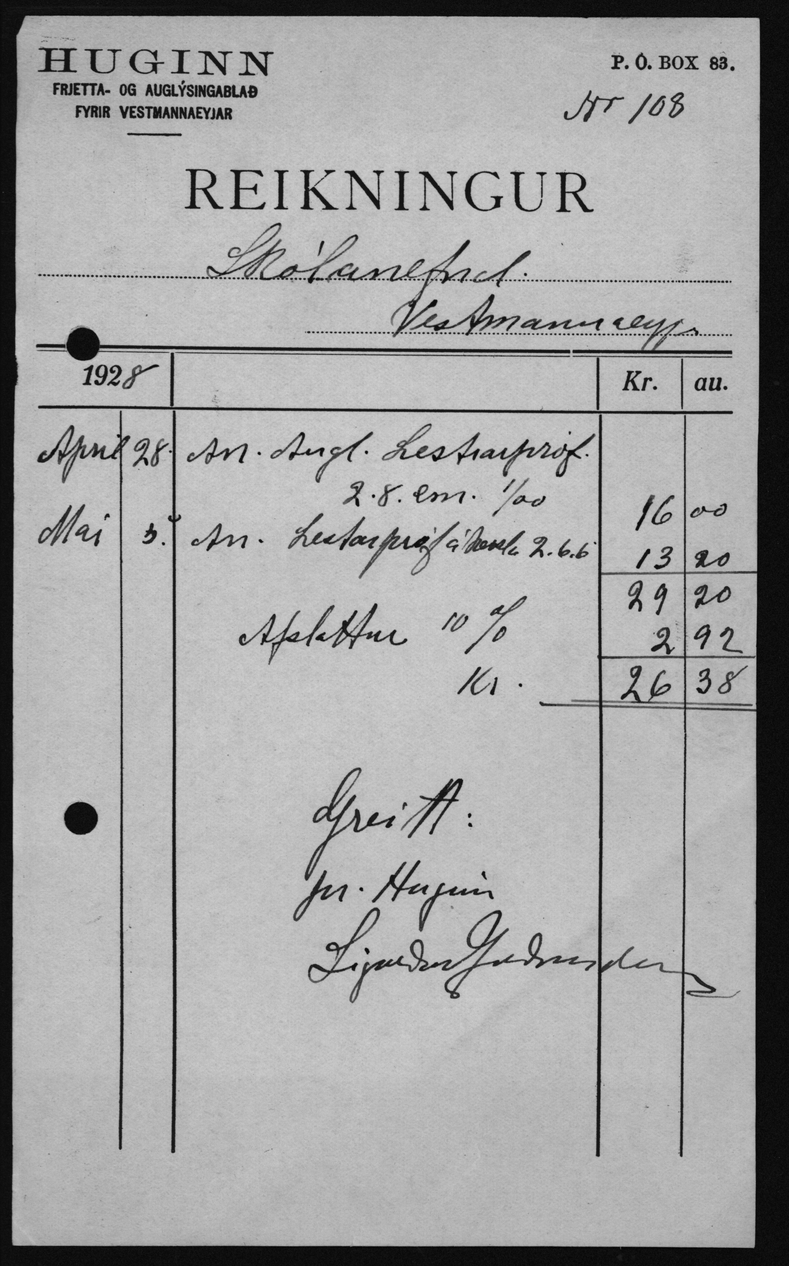 HUGINN
FRJETTA- OG AUGLÝSINGABLAÐ
FYRIR VESTMANNAEYJAR
P. Ó. BOX 83.
Nr 108
REIKNINGUR
Skólanefnd.
Vestmannaeyja
1928 Kr. au.
April 28. An. Augl. Lestrarpróf.
2.8. em. 1/00 16 00
Mai 5. An. Lestarpróf 2.6.6 13 20
29 20
Afslattur 10 % 2 92
Kr. 26 38
Greitt:
pr. Huginn